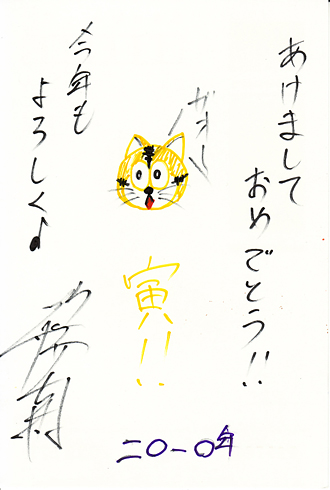 あけまして
おめでとう!!
ガオーッ
寅!!
今年も
よろしく♪
二〇一〇年